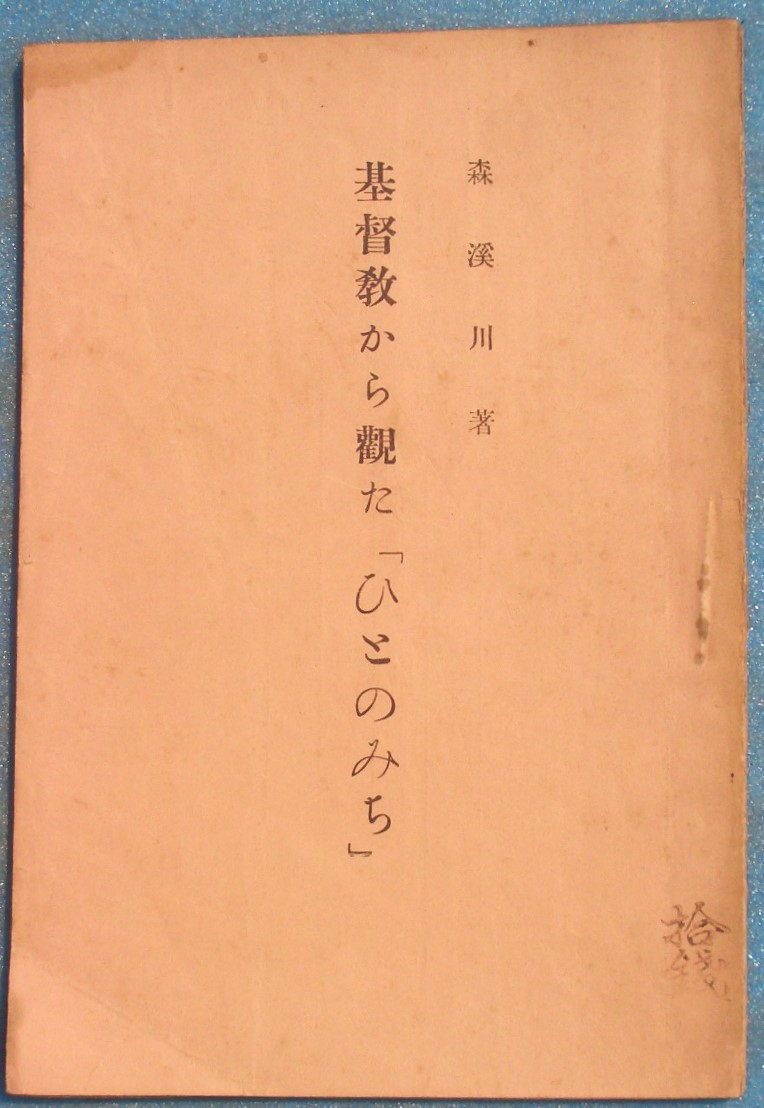 森溪川著
基督教から觀た「ひとのみち」
拾錢